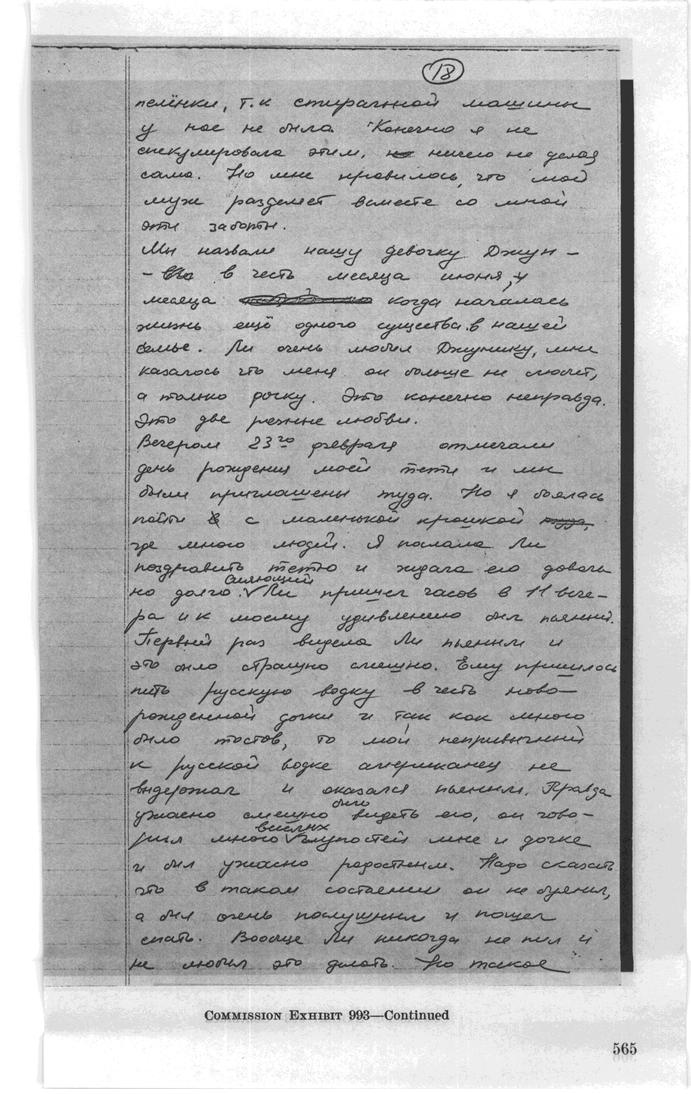 18
пелёнки, т.к стиральной машины
у нас не была. Конечно я не
спекулировала этим, ничего не делая
сама. Но мне нравилось, что мой
муж разделяет вместе со мной
эти заботы.
Мы назвали нашу девочку Джун –
– в честь месяца июня,
месяца когда началась
жизнь ещё одного существа в нашей
семье. Ли очень любил Джунику, мне
казалось что меня он больше не любит,
а только дочку. Это конечно неправда.
Это две разные любви.
Вечером 23го февраля отмечали
день рождения моей тети и мы
были приглашены туда. Но я боялась
пойти с маленькой крошкой
где много людей. Я послала Ли
поздравить тетю и ждала его доволь
но долго. Сияющий Ли пришел часов в 11 вече-
ра и к моему удивлению был пьяный.
Первый раз видела Ли пьяным и
это было страшно смешно. Ему пришлось
пить русскую водку в честь ново-
рожденной дочки и так как много
было тостов, то мой непривычный
к русской водке американец не
выдержал и оказался пьяным. Правда
ужасно смешно было видеть его, он гово-
рил много веселых глупостей мне и дочке
и был ужасно радостным. Надо сказать
что в таком состоянии он не буянил,
а был очень послушным и пошел
спать. Вообще Ли никогда не пил и
не любил это делать. Но такое
COMMISSION EXHIBIT 993—Continued
565